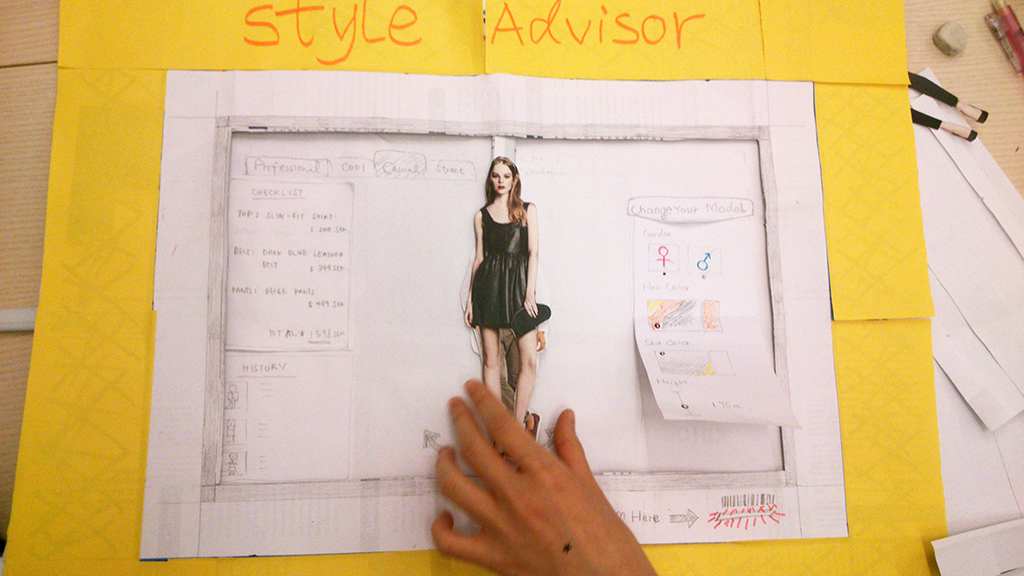 style Advisor
Professional Cool Casual Street
CHECKLIST
TOP: SLIM-FIT SHIRT:
BELT: DARK BLUE LEATHER
BELT $ 799 SEK
PANTS: BEIGE PANTS
$ 499 SEK
TOTAL:
HISTORY
Change Your Model
Gender
Hair Color
Skin Color
Height
175m
Here